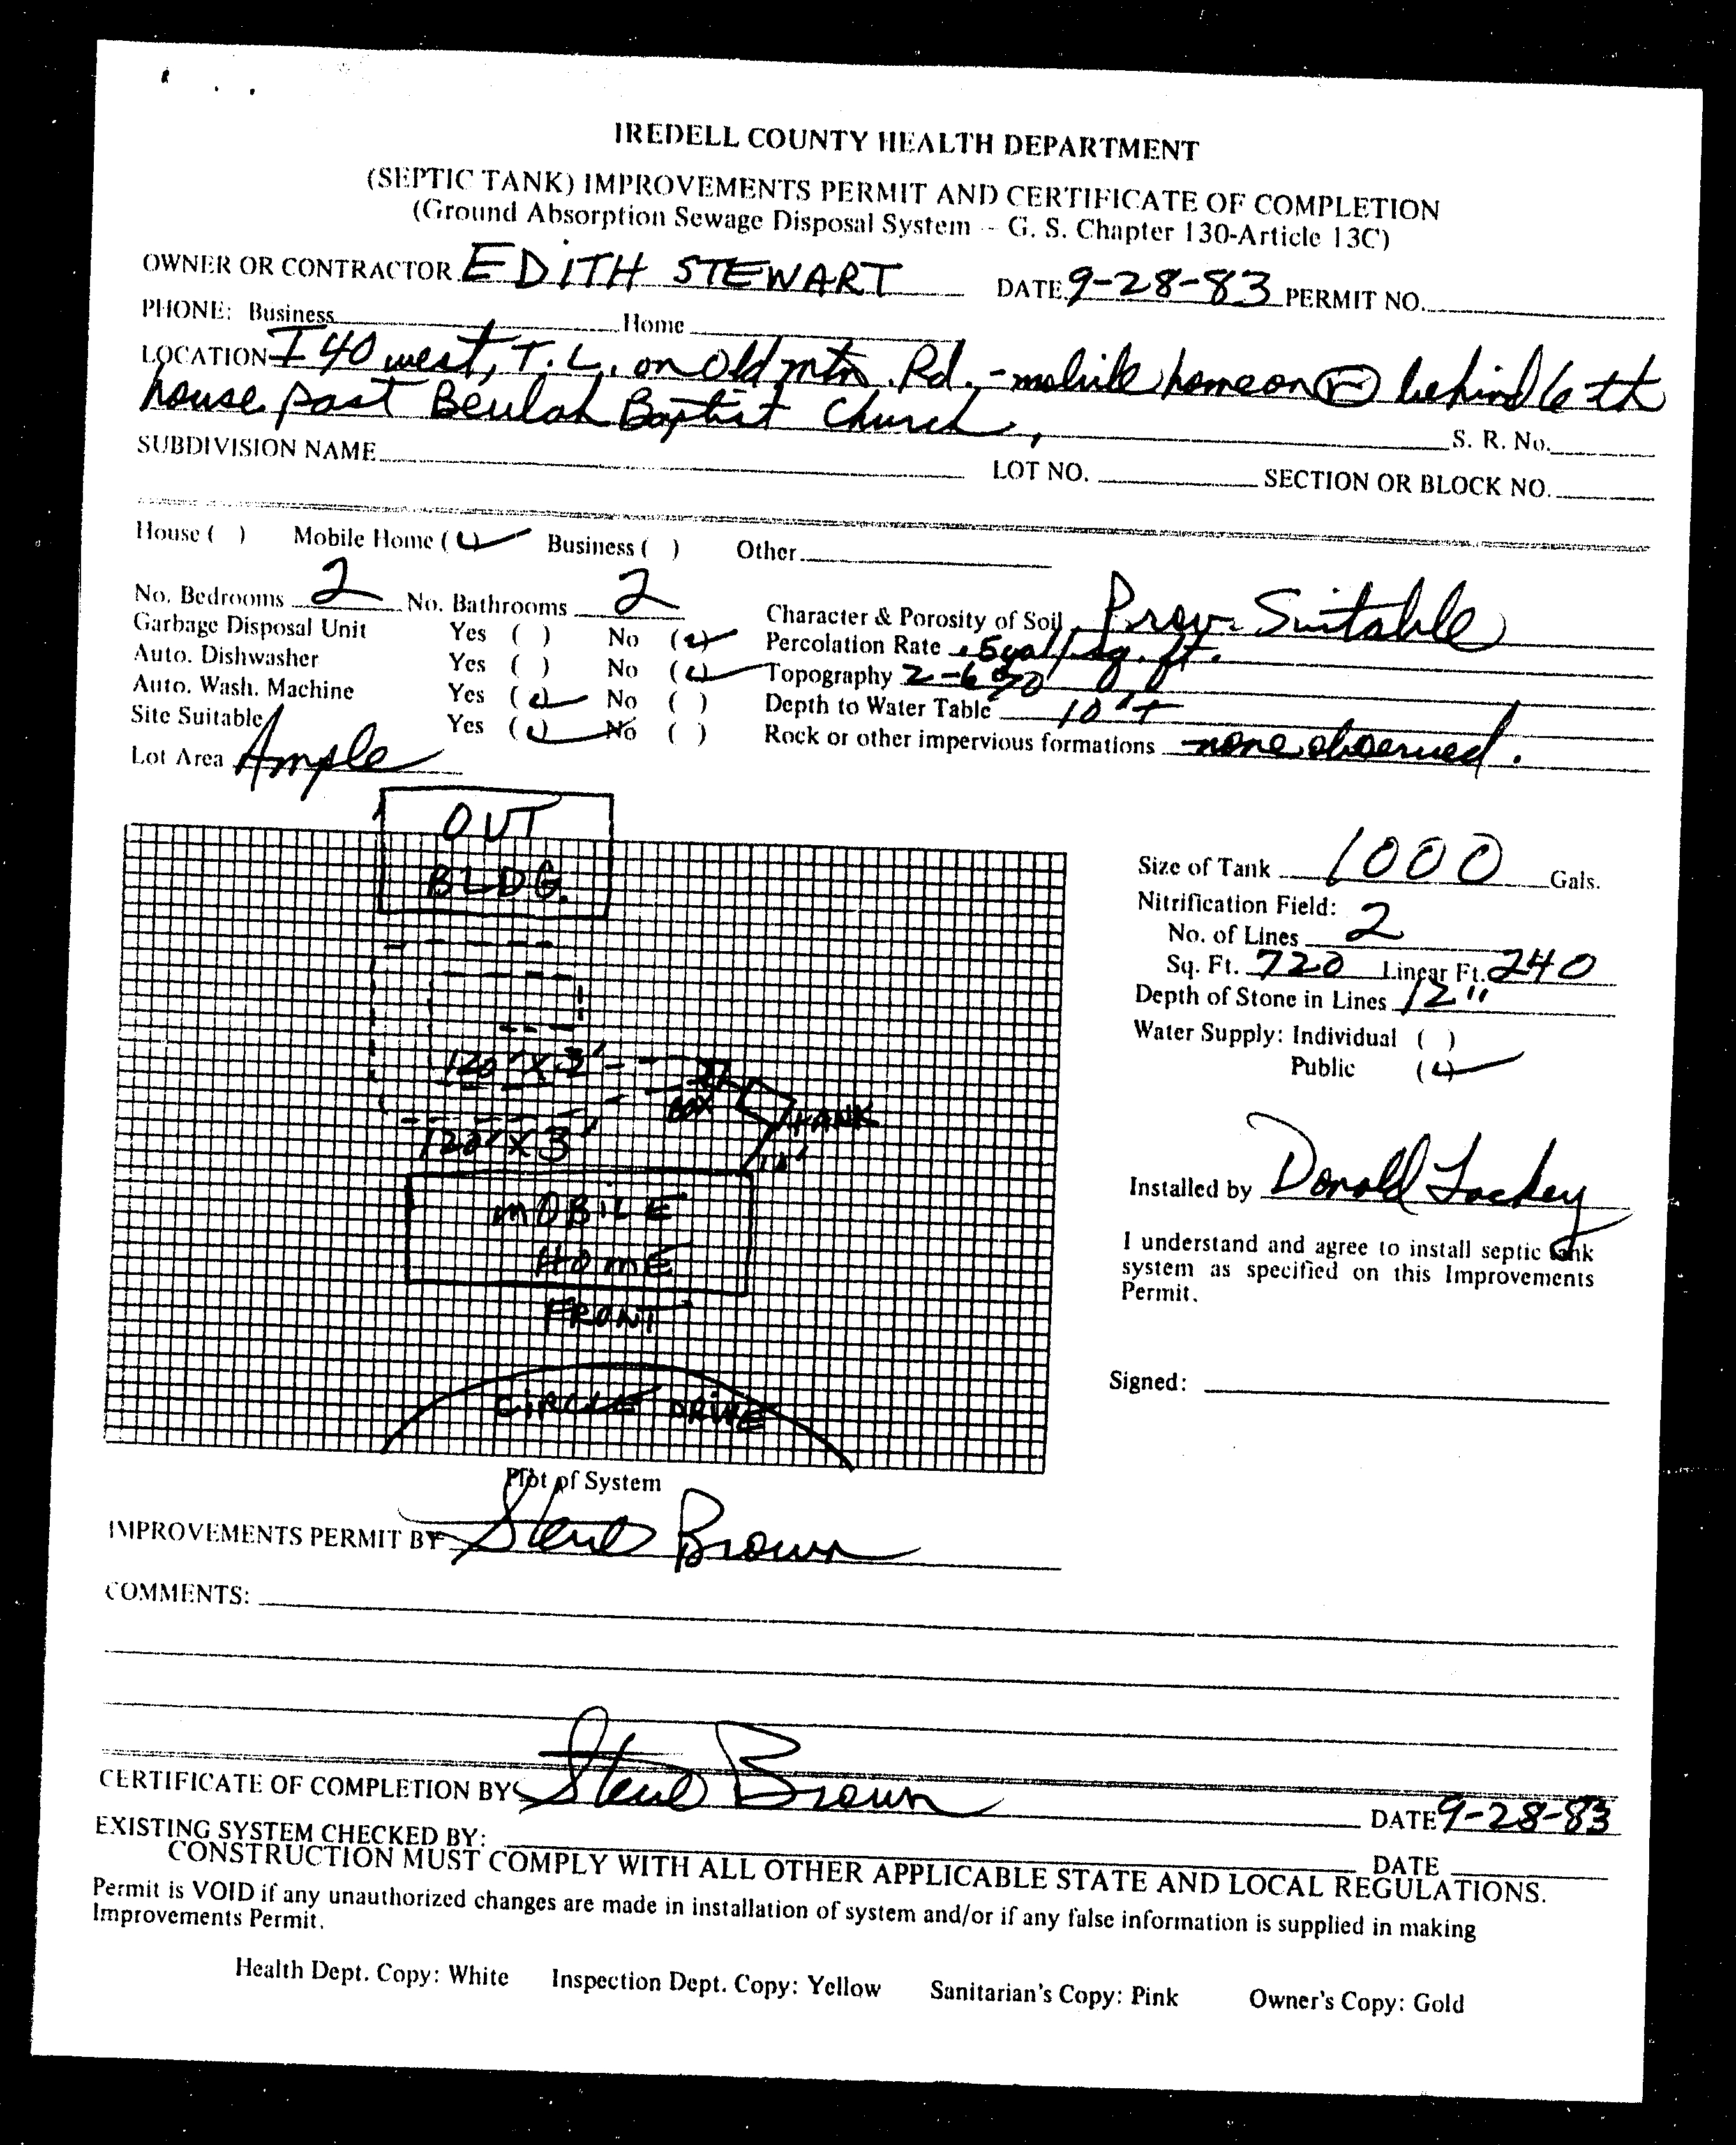 IREDELL COUNTY HEALTH DEPARTMENT
(SEPTIC TANK) IMPROVEMENTS PERMIT AND CERTIFICATE OF COMPLETION
(Ground Absorption Sewage Disposal System -- G. S. Chapter 130-Article 13C)
OWNER OR CONTRACTOR EDITH STEWART DATE 9-28-83 PERMIT NO.
PHONE: Business Home
LOCATION I 40 west, T.L. on Old mtn. Rd. - mobile home on R behind 6th
house past Beulah Baptist Church, S. R. No.
SUBDIVISION NAME LOT NO. SECTION OR BLOCK NO.
House ( ) Mobile Home (✓) Business ( ) Other
No. Bedrooms 2 No. Bathrooms 2
Garbage Disposal Unit Yes ( ) No (✓)
Auto. Dishwasher Yes ( ) No (✓)
Auto. Wash. Machine Yes (✓) No ( )
Site Suitable Yes (✓) No ( )
Lot Area Ample
Character & Porosity of Soil Prov. Suitable
Percolation Rate .5gal/sq. ft.
Topography 2-6%
Depth to Water Table 10'+
Rock or other impervious formations none observed.
OUT
BLDG.
120' X 3'
BOX
TANK
120' X 3'
10'
MOBILE
HOME
FRONT
CIRCLE DRIVE
Plot of System
Size of Tank 1000 Gals.
Nitrification Field:
No. of Lines 2
Sq. Ft. 720 Linear Ft. 240
Depth of Stone in Lines 12"
Water Supply: Individual ( )
Public (✓)
Installed by Donald Lackey
I understand and agree to install septic tank
system as specified on this Improvements
Permit.
Signed:
IMPROVEMENTS PERMIT BY Steve Brown
COMMENTS:
CERTIFICATE OF COMPLETION BY Steve Brown DATE 9-28-83
EXISTING SYSTEM CHECKED BY: DATE
CONSTRUCTION MUST COMPLY WITH ALL OTHER APPLICABLE STATE AND LOCAL REGULATIONS.
Permit is VOID if any unauthorized changes are made in installation of system and/or if any false information is supplied in making
Improvements Permit.
Health Dept. Copy: White Inspection Dept. Copy: Yellow Sanitarian's Copy: Pink Owner's Copy: Gold